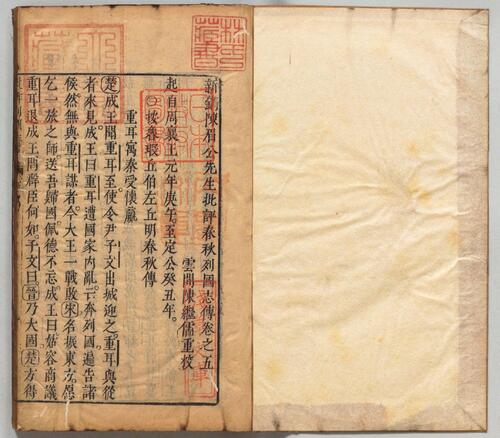 林氏藏書
新鐫陳眉公先生批評春秋列國志傳卷之五
雲間陳繼儒重校
起自周襄王元年庚午至定公癸丑年。
按春瑕丘伯左丘明春秋傳
重耳寓秦受懷嬴
楚成王聞重耳至使令尹子文出城迎之。重耳與從
者來見成王曰重耳遭國家內亂。奔列國遍告諸
侯然無與重耳謀者。今大王一戰敗宋名振東方。愿
乞一旅之師送吾歸國佩德不忘成王曰姑容商議
重耳退成王問群臣何如。子文曰。晉乃大國楚方得